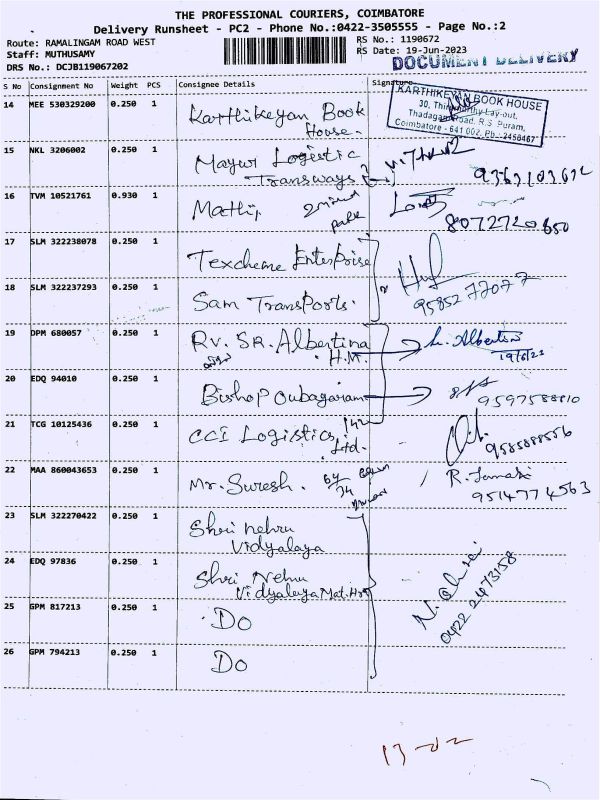 THE PROFESSIONAL COURIERS, COIMBATORE
Delivery Runsheet - PC2 - Phone No.:0422-3505555 - Page No.:2
Route: RAMALINGAM ROAD WEST
RS No.: 1190672
Staff: MUTHUSAMY
RS Date: 19-Jun-2023
DRS No.: DCJB119067202
DOCUMENT DELIVERY
S No Consignment No Weight PCS Consignee Details Signature
14 MEE 530329200 0.250 1 Karthikeyan Book House.
KARTHIKEYAN BOOK HOUSE
Coimbatore - 641 002, Ph.: 2458467
15 NKL 3206002 0.250 1 Mayur Logistic Transways
16 TVM 10521761 0.930 1
8072720650
17 SLM 322238078 0.250 1 Texcheme Enterprise
18 SLM 322237293 0.250 1 Sam Transports.
95852 77077
19 DPM 680057 0.250 1 Rv. SR. Albertina H.M.
19/6/23
20 EDQ 94010 0.250 1 Bishop Oubagaram
9597588810
21 TCG 10125436 0.250 1 CCI Logistics Ltd.
22 MAA 860043653 0.250 1 Mr. Suresh.
9514774563
23 SLM 322270422 0.250 1 Shri Nehru Vidyalaya
24 EDQ 97836 0.250 1 Shri Nehru Vidyalaya Mat.
0422 2473158
25 GPM 817213 0.250 1 Do
26 GPM 794213 0.250 1 Do